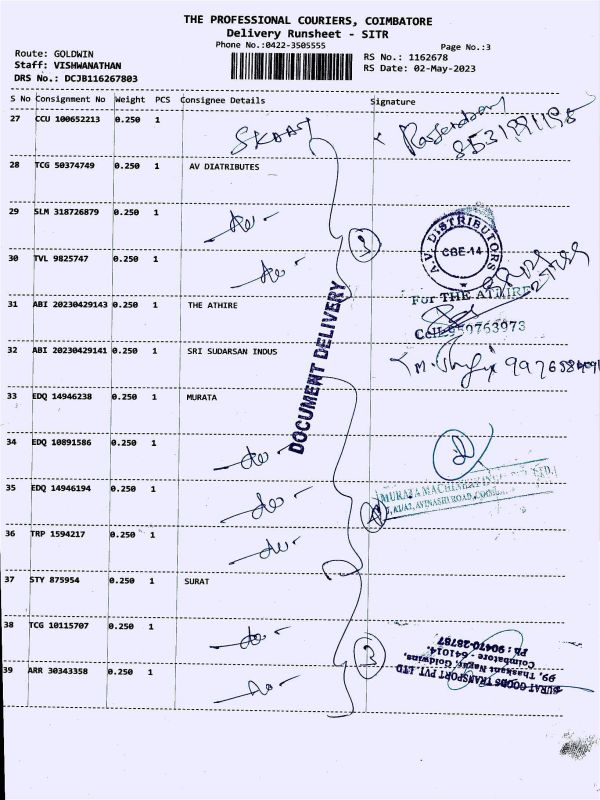 THE PROFESSIONAL COURIERS, COIMBATORE
Delivery Runsheet - SITR
Phone No.:0422-3505555
Page No.:3
Route: GOLDWIN
Staff: VISHWANATHAN
DRS No.: DCJB116267803
RS No.: 1162678
RS Date: 02-May-2023
S No Consignment No Weight PCS Consignee Details Signature
27 CCU 100652213 0.250 1
28 TCG 50374749 0.250 1 AV DIATRIBUTES
29 SLM 318726879 0.250 1
30 TVL 9825747 0.250 1
A.V. DISTRIBUTORS
CBE-14
31 ABI 20230429143 0.250 1 THE ATHIRE
For THE ATHIRE
32 ABI 20230429141 0.250 1 SRI SUDARSAN INDUS
DOCUMENT DELIVERY
33 EDQ 14946238 0.250 1 MURATA
34 EDQ 10891586 0.250 1
35 EDQ 14946194 0.250 1
MURATA MACHINERY
AVINASHI ROAD,
36 TRP 1594217 0.250 1
37 STY 875954 0.250 1 SURAT
38 TCG 10115707 0.250 1
39 ARR 30343358 0.250 1
SURAT GOODS TRANSPORT PVT. LTD
99, Thaskant Nagar, Goldwins,
Coimbatore - 641014.
Ph : 90470-28787